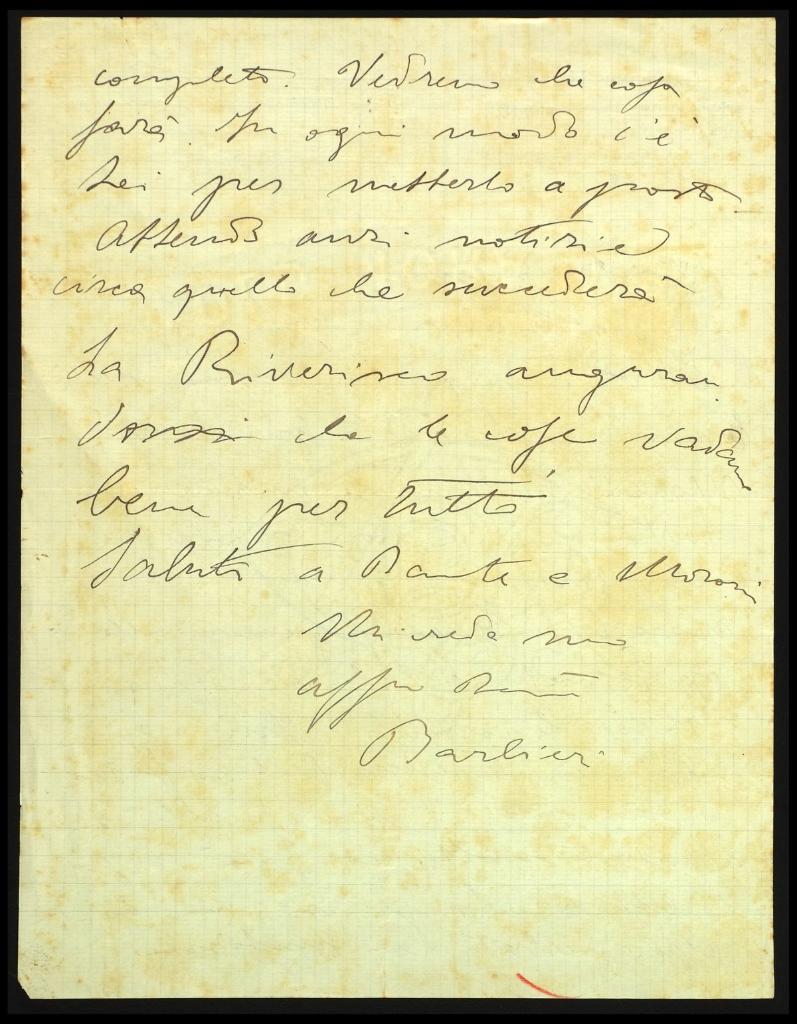 completo. Vedremo che cosa
farà. In ogni modo c'è
Lei per metterlo a posto.
Attendo anzi notizie
circa quello che succederà
La Riverisco auguran
dossi che le cose vadano
bene per tutto
Saluti a Dante e Moroni
Mi creda suo
affmo
Barbieri